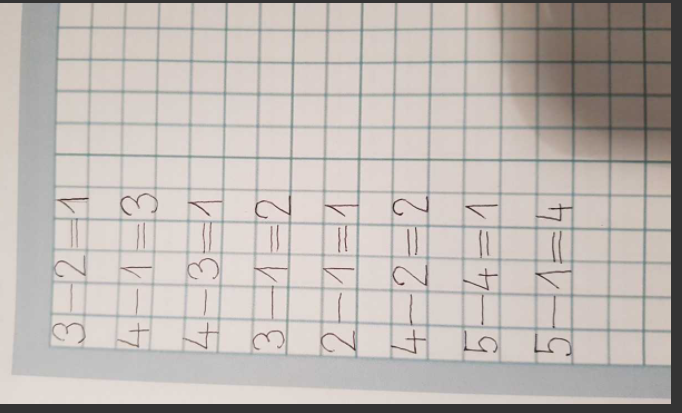 3-2=1
4-1=3
4-3=1
3-1=2
2-1=1
4-2=2
5-4=1
5-1=4